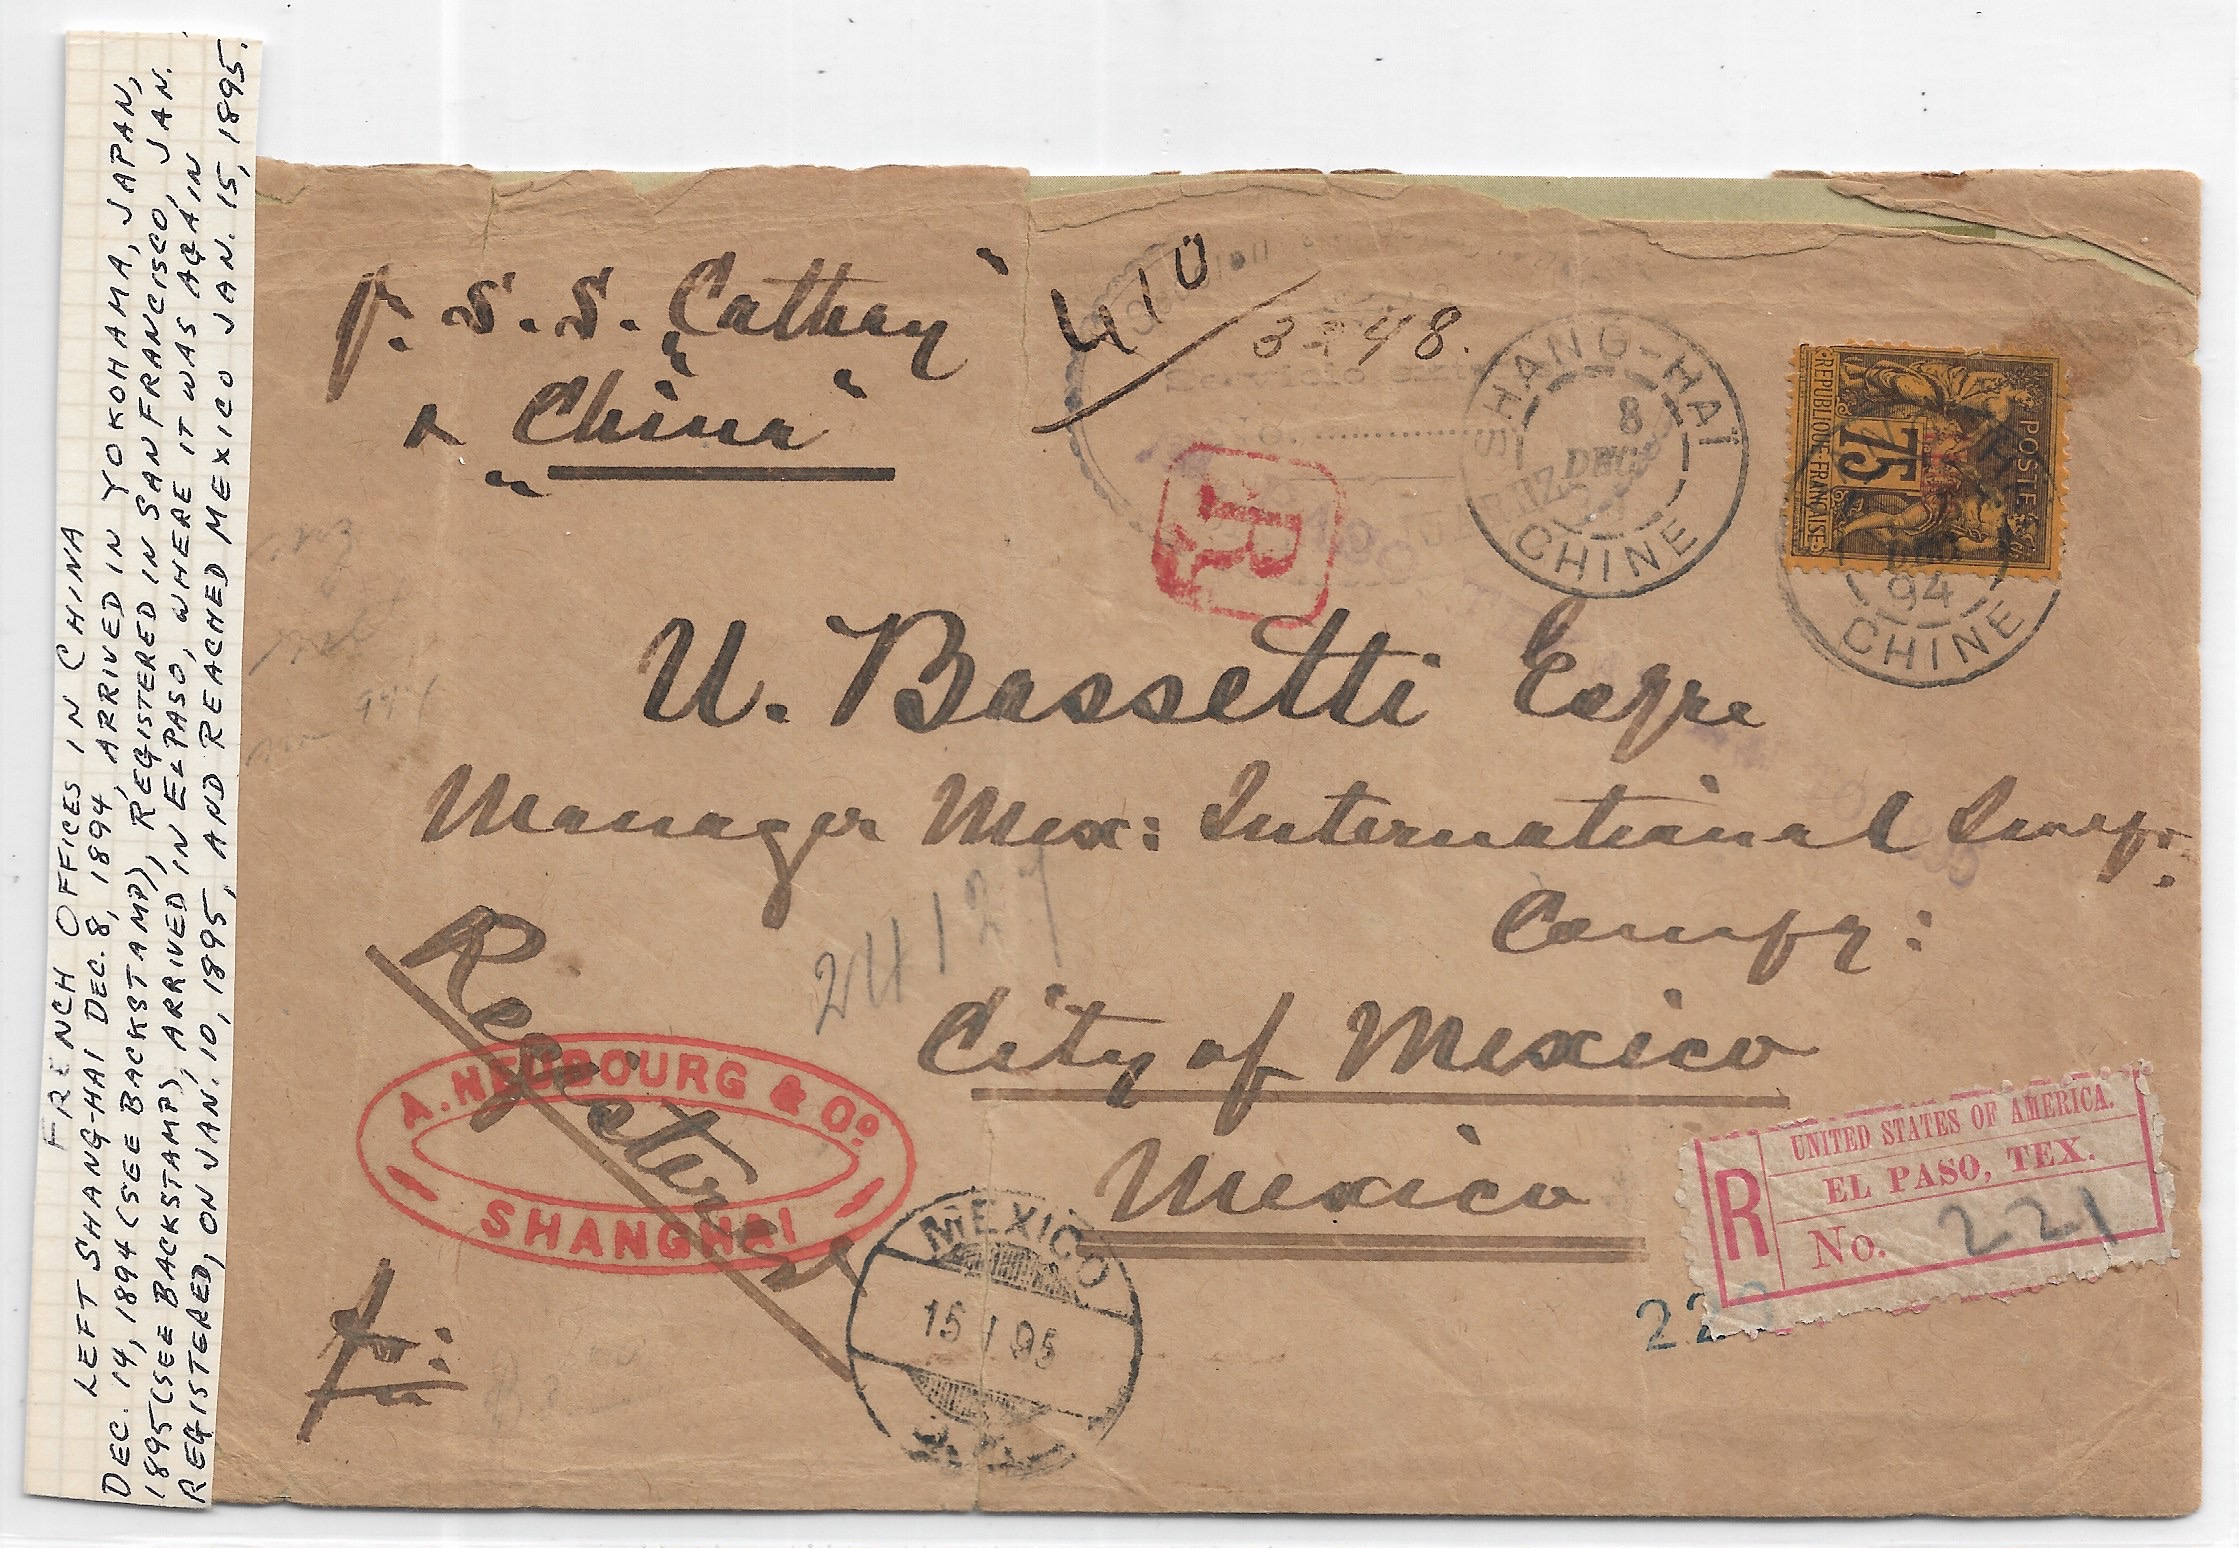 FRENCH OFFICES IN CHINA
LEFT SHANG-HAI DEC. 8, 1894, ARRIVED IN YOKOHAMA, JAPAN,
DEC. 14, 1894 (SEE BACKSTAMP), REGISTERED IN SAN FRANCISCO, JAN.
1895 (SEE BACKSTAMP), ARRIVED IN EL PASO, WHERE IT WAS AGAIN
REGISTERED, ON JAN. 10, 1895, AND REACHED MEXICO JAN. 15, 1895.
p. S. S. "Cathay"
& "China"
410
3348.
Servicio
No.
R
SHANG-HAÏ
8
DEC
CHINE
POSTES
75
REPUBLIQUE FRANÇAISE
DEC
94
CHINE
U. Bassetti Esqre
Manager Mex: International Impr:
Compy:
City of Mexico
Mexico
24127
Registered
A. NEUBOURG & Co.
SHANGHAI
MEXICO
15 I 95
UNITED STATES OF AMERICA.
R
EL PASO, TEX.
No. 221